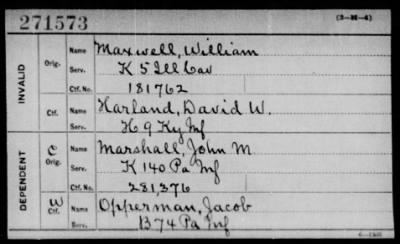 271573
(3—M—4)
INVALID
Orig.
Name Maxwell, William
Serv. K 5 Ill Cav
Ctf. No. 181762
Ctf.
Name Harland, David W.
Serv. H 9 Ky Inf
DEPENDENT
C
Orig.
Name Marshall, John M.
Serv. K 140 Pa Inf
Ctf. No. 281,376
W
Ctf.
Name Opperman, Jacob
Serv. B 74 Pa Inf